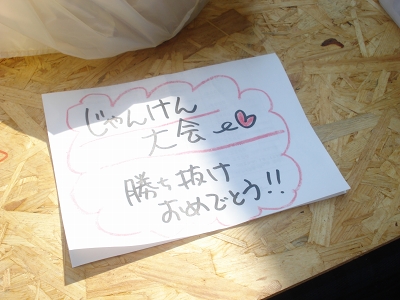 じゃんけん
大会
勝ち抜け
おめでとう!!